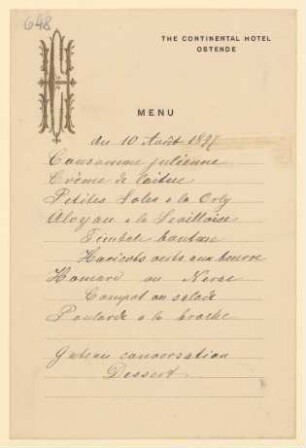 648
THE CONTINENTAL HOTEL
OSTENDE
MENU
du 10 Août 1897
Consomme julienne
Crème de laitue
Petites Soles à la Orly
Aloyau à la
Timbale
Haricots verts aux beurre
Homard au
salade
Poularde à la broche
Gateau conversation
Dessert